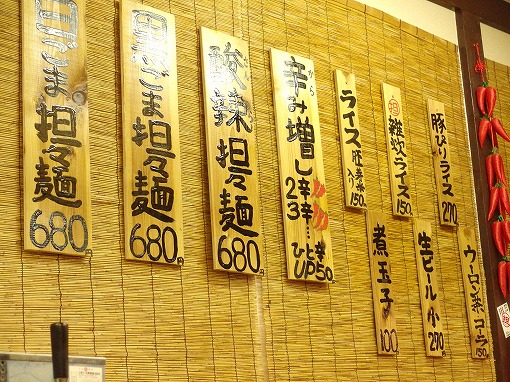 白ごま担々麺
680円
黒ごま担々麺
680円
酸辣担々麺
680円
から
辛み増し
2辛
3辛
ひと辛
UP50円
ライス
150円
雑炊ライス
150円
豚ぴりライス
270円
煮玉子
100
生ビール小
270円
ウーロン茶コーラ
150円